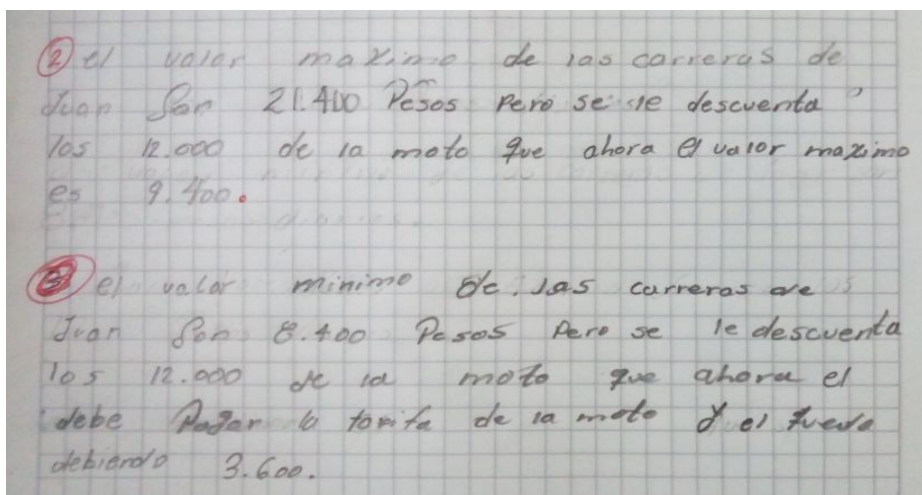 ② el valor maximo de las carreras de
Juan Son 21.400 Pesos Pero se le descuenta
los 12.000 de la moto que ahora el valor maximo
es 9.400.
③ el valor minimo de las carreras de
Juan Son 8.400 Pesos Pero se le descuenta
los 12.000 de la moto que ahora el
debe Pagar la tarifa de la moto y el queda
debiendo 3.600.